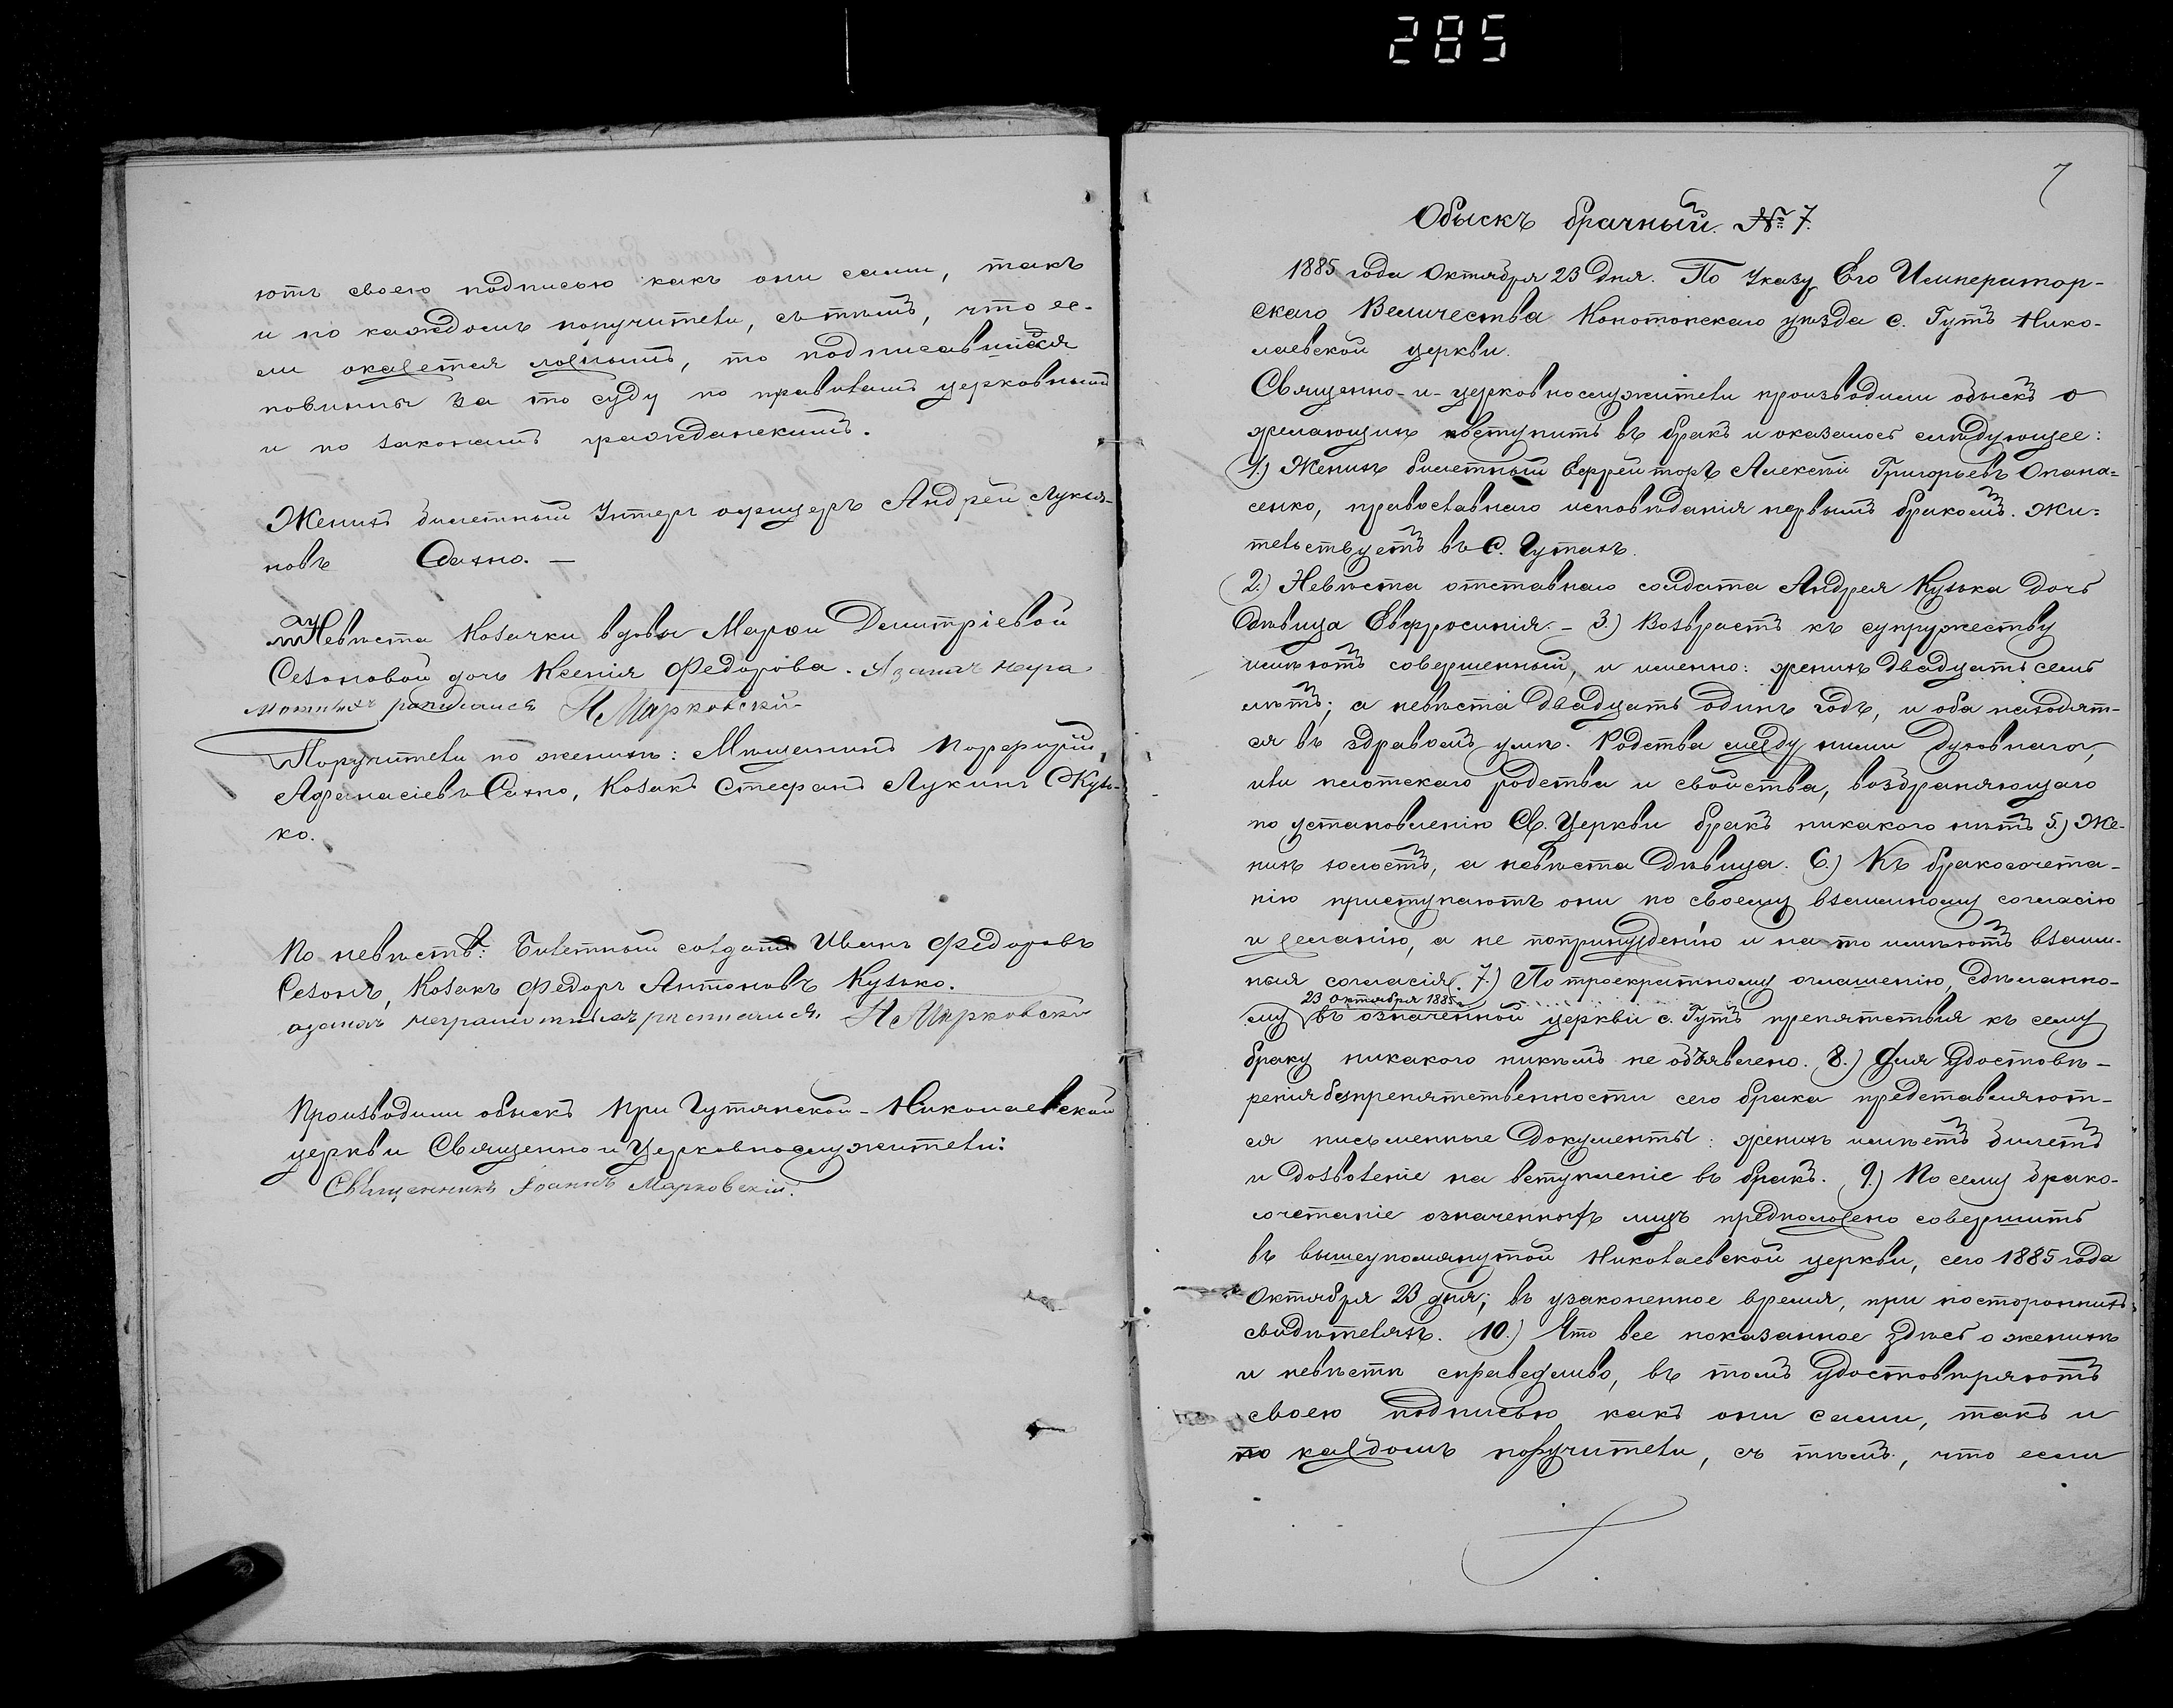 285
ютъ своею подписью какъ они сами, такъ
и по каждомъ поручители, съ тѣмъ, что ес-
ли окажется ложнымъ, то подписавшіеся
повинны за то суду по правиламъ церковнымъ
и по законамъ гражданскимъ.
Женихъ билетный Унтеръ офицеръ Андрей Лукья-
новъ Сахно. —
Невѣста Козачки вдовы Марфи Димитріевой
Сезоновой дочь Ксенія Федорова. А за нихъ негра
мотныхъ росписался Н Марковскій
Поручители по женихѣ: Мѣщанинъ Порфирій
Афанасіевъ Сахно, Козакъ Стефанъ Лукинъ Кузь-
ко.
По невѣстѣ: Билетный солдатъ Иванъ Федоровъ
Сезонъ, Козакъ Федоръ Антоновъ Кузько.
а за нихъ неграмотныхъ росписался. Н Марковскі
Производили обыскъ При Гутянской-Николаевской
церкви Священно и Церковнослужители:
Священникъ Іоаннъ Марковскій.
7
Обыскъ брачный. № 7.
1885 года Октября 23 Дня. По Указу Его Император-
скаго Величества Конотопскаго уѣзда с. Гутъ Нико-
лаевской церкви.
Священно-и-церковнослужители производили обыскъ о
желающихъ вступить въ бракъ и оказалось слѣдующее:
1.) Женихъ билетный Ефрейторъ Алексѣй Григорьевъ Опана=
сенко, православнаго исповѣданія первымъ бракомъ. Жи=
тельствуетъ въ С. Гутахъ.
2.) Невѣста отставнаго солдата Андрея Кузька дочь
Дѣвица Евфросинія. – 3.) Возрастъ къ супружеству
имѣютъ совершенный, и именно: женихъ двадцать семь
лѣтъ; а невѣста двадцать одинъ годъ, и оба находят-
ся въ здравомъ умѣ. Родства между ними духовнаго,
или плотскаго родства и свойства, возбраняющаго
по установленію Св. Церкви бракъ никакого нѣтъ 5.) Же-
нихъ холостъ, а невѣста Дѣвица. 6.) Къ бракосочета-
нію приступаютъ они по своему взаимному согласію
и желанію, а не попринужденію и на то имѣютъ взаим-
ныя согласія. 7.) По троекратному оглашенію, сдѣланно-
23 Октября 1885 г.
му въ означенной церкви с. Гутъ препятствія къ сему
браку никакого никѣмъ не объявлено. 8.) Для Удостовѣ-
ренія безпрепятственности сего брака представляют-
ся письменные Документы: женихъ имѣетъ билетъ
и дозволеніе на вступленіе въ бракъ. 9.) По сему брако-
сочетаніе означенныхъ лицъ предположено совершить
въ вышеупомянутой Николаевской церкви, сего 1885 года
Октября 23 дня; въ узаконенное время, при постороннихъ
свидѣтеляхъ. 10.) Что все показанное здѣсь о женихѣ
и невѣстѣ справедливо, въ томъ Удостовѣряютъ
своею подписью какъ они сами, такъ и
по каждомъ поручители, съ тѣмъ, что если